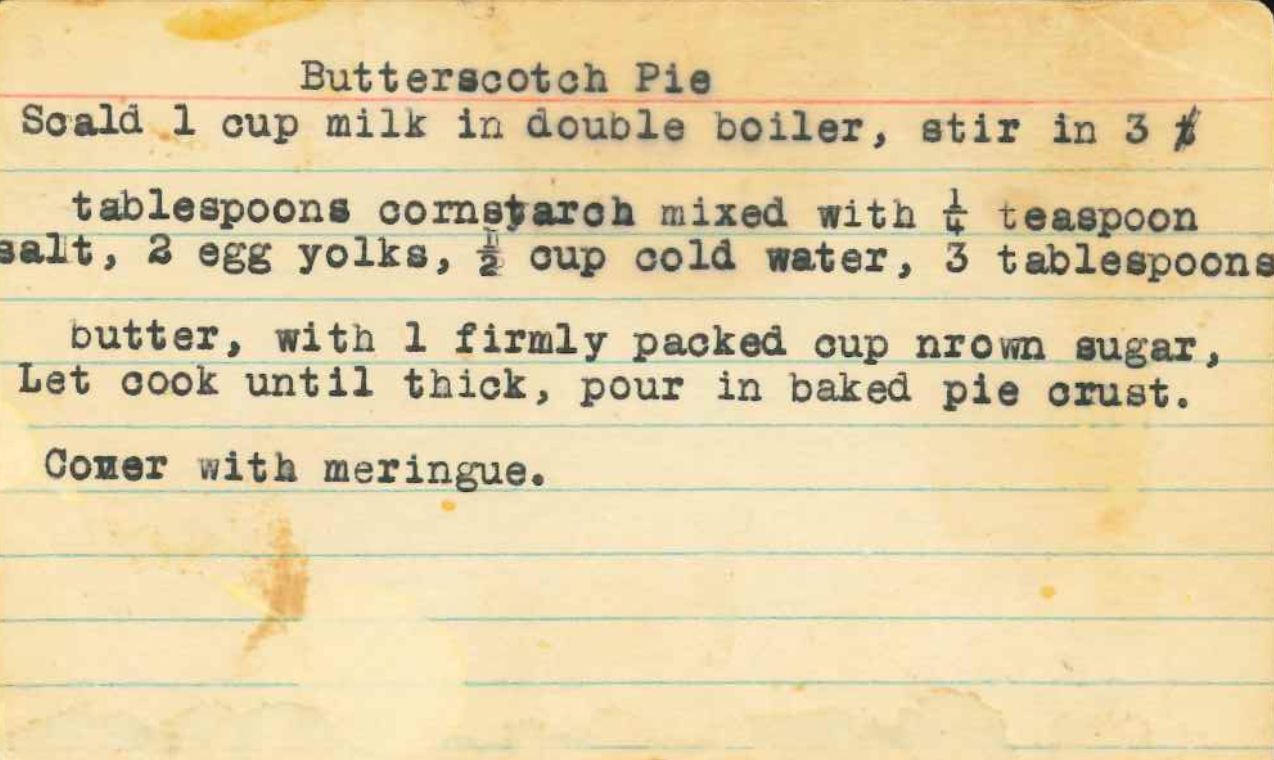 Butterscotch Pie
Scald 1 cup milk in double boiler, stir in 3
tablespoons cornstarch mixed with ¼ teaspoon
salt, 2 egg yolks, ½ cup cold water, 3 tablespoons
butter, with 1 firmly packed cup nrown sugar,
Let cook until thick, pour in baked pie crust.
with meringue.